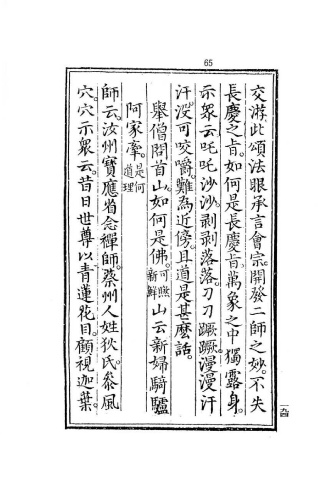 65
交游此頌法眼承言會宗。開發二師之妙。不失
長慶之旨。如何是長慶旨。萬象之中獨露身。
示眾云吒吒沙沙。剥剥落落。刀刀蹶蹶。漫漫汗
汗。没可咬嚼。難為近傍。且道是甚麽話。
舉僧問首山。如何是佛。可煞新鮮山云新婦騎驢
阿家牽。是何道理
師云。汝州寶應省念禪師。蔡州人姓狄氏。叅風
穴。穴示眾云。昔日世尊以青蓮花目。顧視迦葉。